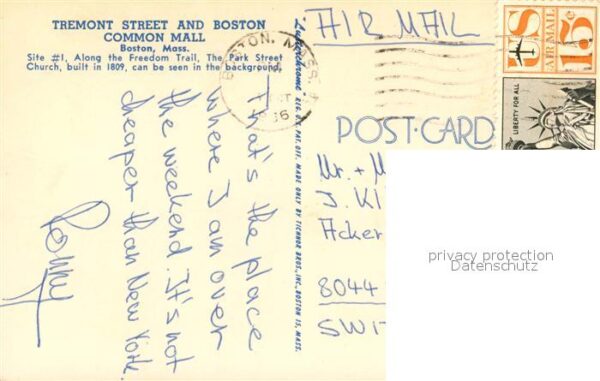 TREMONT STREET AND BOSTON
COMMON MALL
Boston, Mass.
Site #1, Along the Freedom Trail, The Park Street
Church, built in 1809, can be seen in the background.
That's the place
where I am over
the weekend. It's not
cheaper than New York.
Penny
REG. U.S. PAT. OFF. MADE ONLY BY TICHNOR BROS., INC., BOSTON 15, MASS.
AIR MAIL
BOSTON, MASS.
POST CARD
US
15c
AIR MAIL
LIBERTY FOR ALL
Mr. + M
J. Kl
Acker
8044
SWIT
privacy protection
Datenschutz